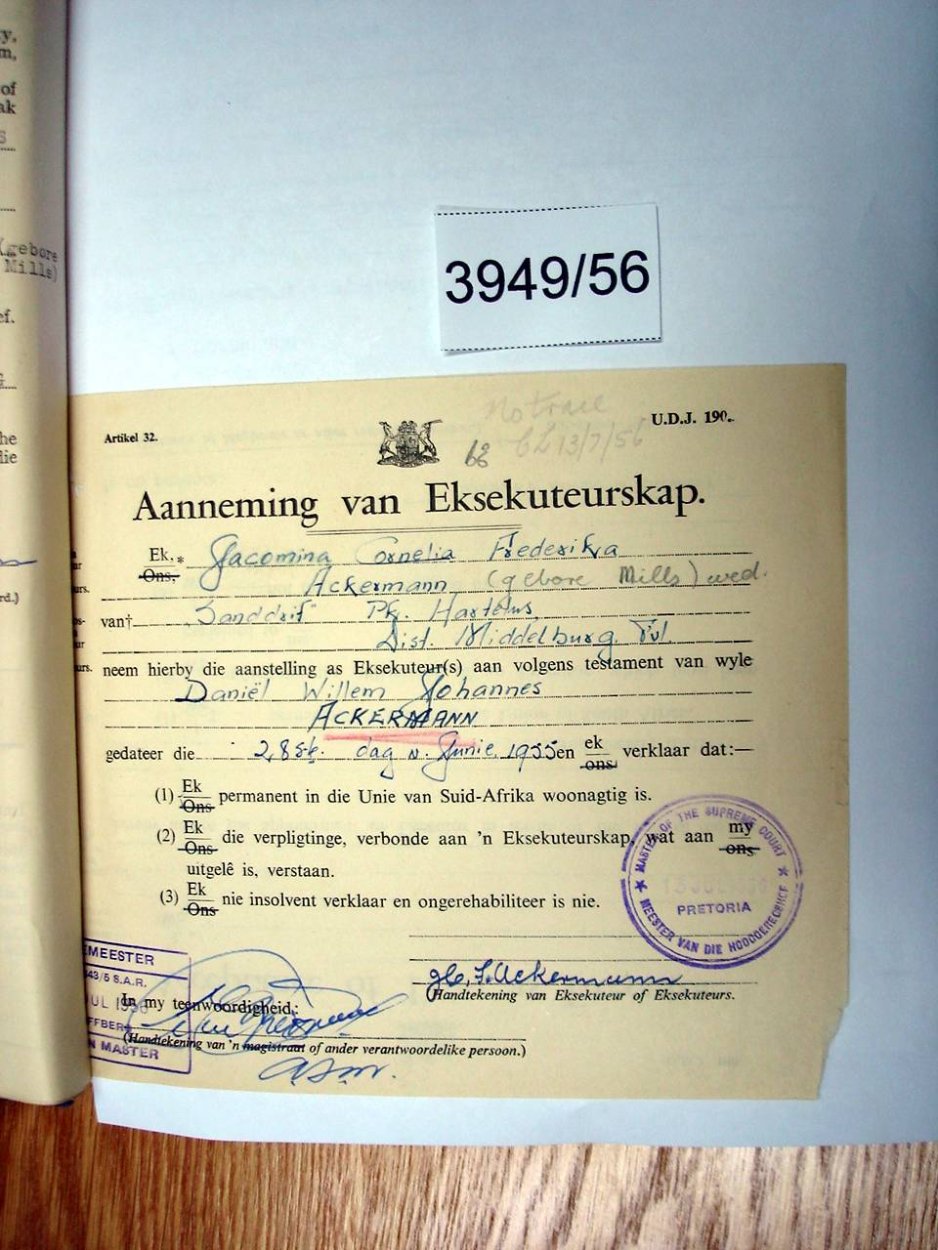 y.
m,
of
ak
(gebore
Mills)
ef.
he
die
rd.)
3949/56
Artikel 32.
No trace
U.D.J. 190.
13/7/56
Aanneming van Eksekuteurskap.
Ek.* Jacomina Cornelia Frederika
Ons.
Ackermann (gebore Mills) wed.
van† "Sanddrif" Pk. Hartebus
Dist. Middelburg Tvl
neem hierby die aanstelling as Eksekuteur(s) aan volgens testament van wyle
Daniël Willem Johannes
ACKERMANN
gedateer die 28ste dag v. Junie 1955 en ek ons verklaar dat:—
(1) Ek Ons permanent in die Unie van Suid-Afrika woonagtig is.
(2) Ek Ons die verpligtinge, verbonde aan 'n Eksekuteurskap, wat aan my ons
uitgelê is, verstaan.
(3) Ek Ons nie insolvent verklaar en ongerehabiliteer is nie.
MASTER OF THE SUPREME COURT
PRETORIA
MEESTER VAN DIE HOOGGEREGSHOF
Ackermann
(Handtekening van Eksekuteur of Eksekuteurs.
EMEESTER
943/5 S.A.R.
JUL 1956
FFBERG
N MASTER
In my teenwoordigheid:
(Handtekening van 'n magistraat of ander verantwoordelike persoon.)